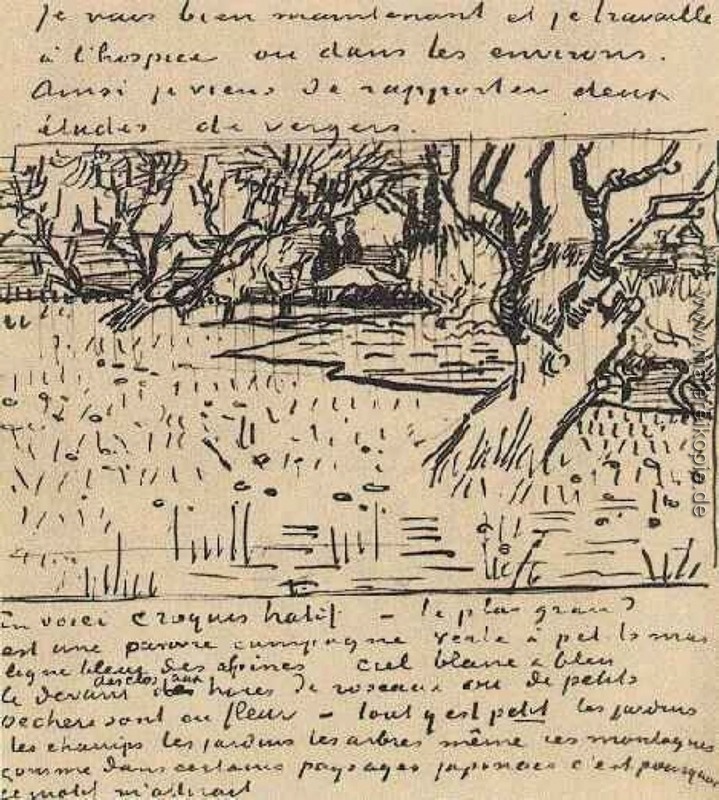 Je vais bien maintenant et je travaille
à l'hospice ou dans les environs.
Ainsi je viens de rapporter deux
études de vergers.
En voici croquis hatif – le plus grand
est une pauvre campagne verte à petits mas
ligne bleue des alpines ciel blanc & bleu
le devant des clos aux haies de roseaux où de petits
pechers sont en fleur – tout y est petit les jardins
les champs les jardins les arbres même ces montagnes
comme dans certains paysages japonais c'est pourquoi
ce motif m'attirait